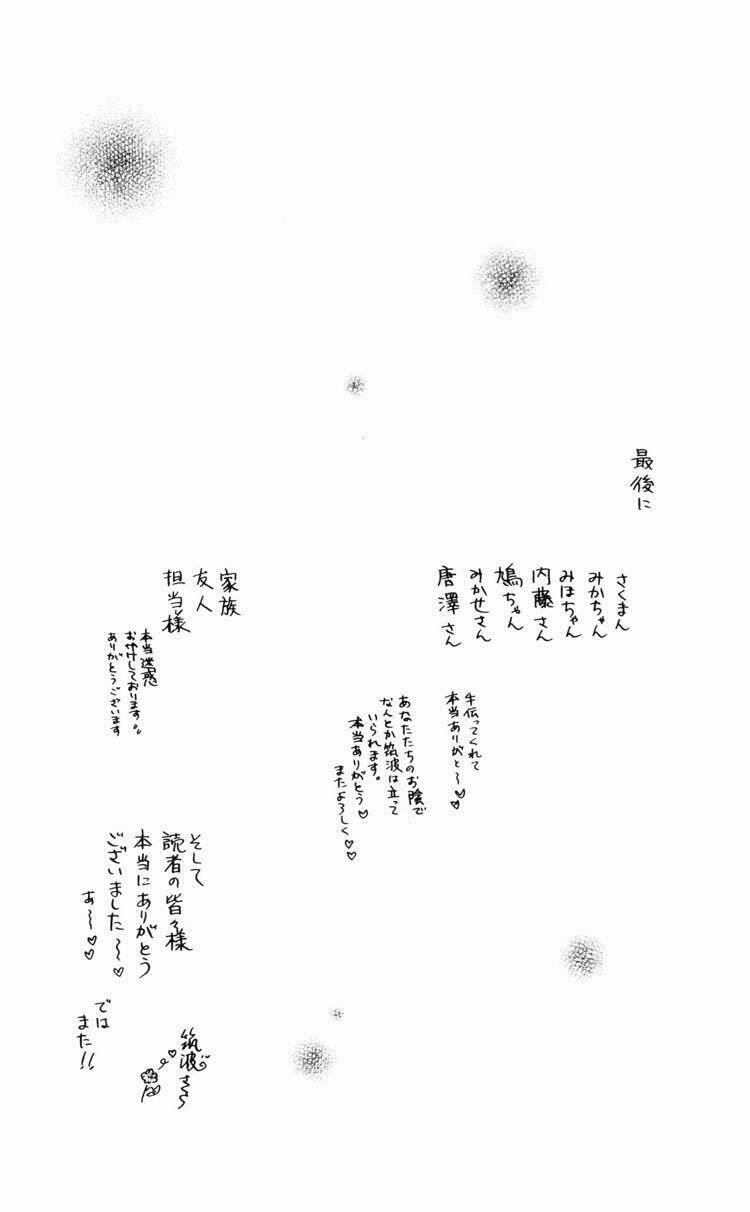 最後に
さくまん
みかちゃん
みほちゃん
内藤さん
鳩ちゃん
みかせさん
唐澤さん
手伝ってくれて
本当ありがと〜♡
あなたたちのお陰で
なんとか筑波は立って
いられます。
本当ありがとう♡
またよろしく♡♡
家族
友人
担当様
本当迷惑
おかけしております。
ありがとうございます
そして
読者の皆々様
本当にありがとう
ございました〜♡
ぁ〜♡♡
では
また!!
筑波さくら